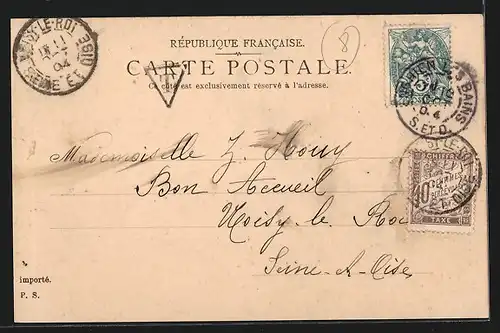 NOISY-LE-ROI
04
SEINE ET OISE
RÉPUBLIQUE FRANÇAISE.
8
CARTE POSTALE
Ce côté est exclusivement réservé à l'adresse.
T
BAINS
04
S. ET O.
Mademoiselle
Bon Accueil
Noisy le Roi
Seine-&-Oise
CHIFFRE
40
TAXE
importé.
P. S.